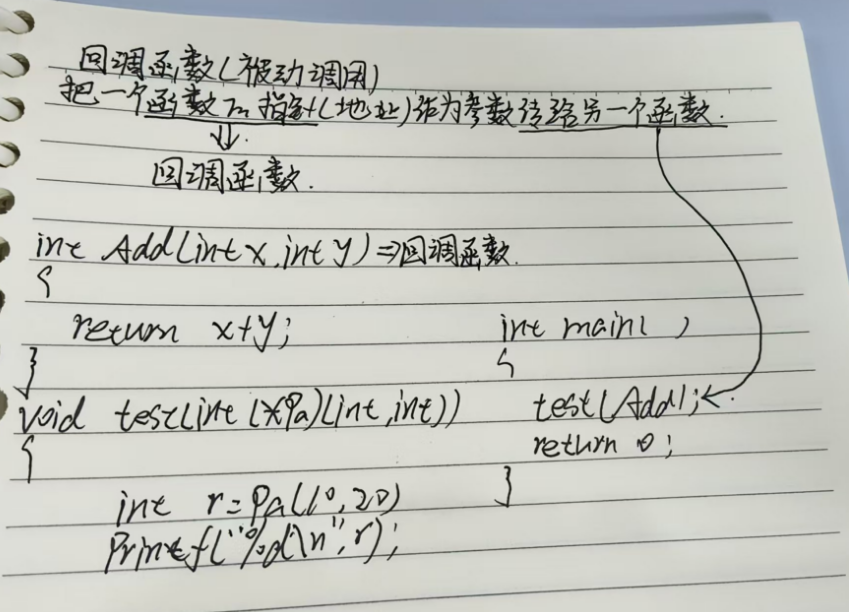 回调函数(被动调用)
把一个函数的指针(地址)作为参数传给另一个函数.
回调函数.
int Add(int x,int y)⇒回调函数.
{
return x+y;
}
void test(int(*Pa)(int,int))
{
int r=Pa(10,20)
Printf("%d\n",r);
int main( )
{
test(Add);
return 0;
}